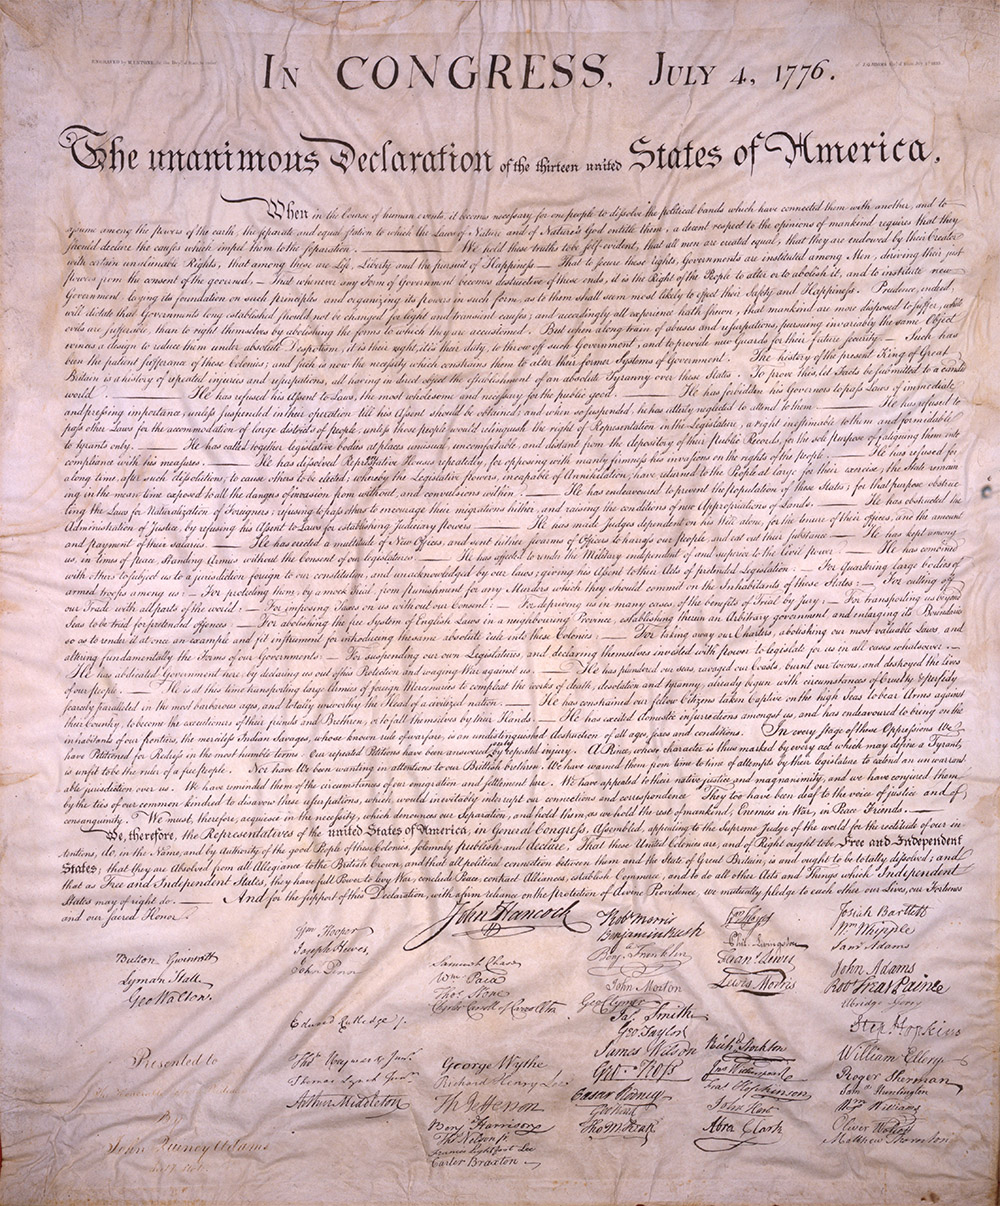 ENGRAVED by W.I.STONE, for the Dept. of State, by order
of J.Q.ADAMS Sect. of State, July 4th 1823.
IN CONGRESS, JULY 4, 1776.
The unanimous Declaration of the thirteen united States of America,
When in the Course of human events, it becomes necessary for one people to dissolve the political bands which have connected them with another, and to
assume among the powers of the earth, the separate and equal station to which the Laws of Nature and of Nature's God entitle them, a decent respect to the opinions of mankind requires that they
should declare the causes which impel them to the separation. — We hold these truths to be self-evident, that all men are created equal, that they are endowed by their Creator
with certain unalienable Rights, that among these are Life, Liberty and the pursuit of Happiness.— That to secure these rights, Governments are instituted among Men, deriving their just
powers from the consent of the governed,— That whenever any Form of Government becomes destructive of these ends, it is the Right of the People to alter or to abolish it, and to institute new
Government, laying its foundation on such principles and organizing its powers in such form, as to them shall seem most likely to effect their Safety and Happiness. Prudence, indeed,
will dictate that Governments long established should not be changed for light and transient causes; and accordingly all experience hath shewn, that mankind are more disposed to suffer, while
evils are sufferable, than to right themselves by abolishing the forms to which they are accustomed. But when a long train of abuses and usurpations, pursuing invariably the same Object
evinces a design to reduce them under absolute Despotism, it is their right, it is their duty, to throw off such Government, and to provide new Guards for their future security.— Such has
been the patient sufferance of these Colonies; and such is now the necessity which constrains them to alter their former Systems of Government. The history of the present King of Great
Britain is a history of repeated injuries and usurpations, all having in direct object the establishment of an absolute Tyranny over these States. To prove this, let Facts be submitted to a candid
world. — He has refused his Assent to Laws, the most wholesome and necessary for the public good. — He has forbidden his Governors to pass Laws of immediate
and pressing importance, unless suspended in their operation till his Assent should be obtained; and when so suspended, he has utterly neglected to attend to them. — He has refused to
pass other Laws for the accommodation of large districts of people, unless those people would relinquish the right of Representation in the Legislature, a right inestimable to them and formidable
to tyrants only. — He has called together legislative bodies at places unusual, uncomfortable, and distant from the depository of their Public Records, for the sole purpose of fatiguing them into
compliance with his measures. — He has dissolved Representative Houses repeatedly, for opposing with manly firmness his invasions on the rights of the people. — He has refused for
a long time, after such dissolutions, to cause others to be elected; whereby the Legislative powers, incapable of Annihilation, have returned to the People at large for their exercise; the State remain
ing in the mean time exposed to all the dangers of invasion from without, and convulsions within. — He has endeavoured to prevent the Population of these States; for that purpose obstruc-
ting the Laws for Naturalization of Foreigners; refusing to pass others to encourage their migrations hither, and raising the conditions of new Appropriations of Lands. — He has obstructed the
Administration of Justice, by refusing his Assent to Laws for establishing Judiciary powers. — He has made Judges dependent on his Will alone, for the tenure of their offices, and the amount
and payment of their salaries. — He has erected a multitude of New Offices, and sent hither swarms of Officers to harrass our people, and eat out their substance. — He has kept among
us, in times of peace, Standing Armies without the Consent of our legislatures. — He has affected to render the Military independent of and superior to the Civil power. — He has combined
with others to subject us to a jurisdiction foreign to our constitution, and unacknowledged by our laws; giving his Assent to their Acts of pretended Legislation: — For Quartering large bodies of
armed troops among us: — For protecting them, by a mock Trial, from punishment for any Murders which they should commit on the Inhabitants of these States: — For cutting off
our Trade with all parts of the world: — For imposing Taxes on us without our Consent: — For depriving us in many cases, of the benefits of Trial by Jury: — For transporting us beyond
Seas to be tried for pretended offences — For abolishing the free System of English Laws in a neighbouring Province, establishing therein an Arbitrary government, and enlarging its Boundaries
so as to render it at once an example and fit instrument for introducing the same absolute rule into these Colonies: — For taking away our Charters, abolishing our most valuable Laws, and
altering fundamentally the Forms of our Governments: — For suspending our own Legislatures, and declaring themselves invested with power to legislate for us in all cases whatsoever. —
He has abdicated Government here, by declaring us out of his Protection and waging War against us. — He has plundered our seas, ravaged our Coasts, burnt our towns, and destroyed the lives
of our people. — He is at this time transporting large Armies of foreign Mercenaries to compleat the works of death, desolation and tyranny, already begun with circumstances of Cruelty & perfidy
scarcely paralleled in the most barbarous ages, and totally unworthy the Head of a civilized nation. — He has constrained our fellow Citizens taken Captive on the high Seas to bear Arms against
their Country, to become the executioners of their friends and Brethren, or to fall themselves by their Hands. — He has excited domestic insurrections amongst us, and has endeavoured to bring on the
inhabitants of our frontiers, the merciless Indian Savages, whose known rule of warfare, is an undistinguished destruction of all ages, sexes and conditions. In every stage of these Oppressions We
have Petitioned for Redress in the most humble terms: Our repeated Petitions have been answered only by repeated injury. A Prince, whose character is thus marked by every act which may define a Tyrant,
is unfit to be the ruler of a free people. Nor have We been wanting in attentions to our Brittish brethren. We have warned them from time to time of attempts by their legislature to extend an unwarrant-
able jurisdiction over us. We have reminded them of the circumstances of our emigration and settlement here. We have appealed to their native justice and magnanimity, and we have conjured them
by the ties of our common kindred to disavow these usurpations, which would inevitably interrupt our connections and correspondence. They too have been deaf to the voice of justice and of
consanguinity. We must, therefore, acquiesce in the necessity, which denounces our Separation, and hold them, as we hold the rest of mankind, Enemies in War, in Peace Friends. —
We, therefore, the Representatives of the united States of America, in General Congress, Assembled, appealing to the Supreme Judge of the world for the rectitude of our in-
tentions, do, in the Name, and by Authority of the good People of these Colonies, solemnly publish and declare, That these United Colonies are, and of Right ought to be Free and Independent
States; that they are Absolved from all Allegiance to the British Crown, and that all political connection between them and the State of Great Britain, is and ought to be totally dissolved; and
that as Free and Independent States, they have full Power to levy War, conclude Peace, contract Alliances, establish Commerce, and to do all other Acts and Things which Independent
States may of right do. — And for the support of this Declaration, with a firm reliance on the protection of divine Providence, we mutually pledge to each other our Lives, our Fortunes
and our sacred Honor.
Button Gwinnett
Lyman Hall
Geo Walton.
Wm Hooper
Joseph Hewes,
John Penn
Edward Rutledge /.
Thos Heyward Junr.
Thomas Lynch Junr.
Arthur Middleton
John Hancock
Samuel Chase
Wm. Paca
Thos. Stone
Charles Carroll of Carrollton
George Wythe
Richard Henry Lee
Th Jefferson
Benj Harrison
Thos Nelson jr.
Francis Lightfoot Lee
Carter Braxton
Robt Morris
Benjamin Rush
Benj. Franklin
John Morton
Geo Clymer
Jas. Smith
Geo. Taylor
James Wilson
Geo. Ross
Caesar Rodney
Geo Read
Tho M:Kean
Wm Floyd
Phil. Livingston
Frans. Lewis
Lewis Morris
Richd. Stockton
Jno Witherspoon
Fras. Hopkinson
John Hart
Abra Clark
Josiah Bartlett
Wm: Whipple
Saml Adams
John Adams
Robt Treat Paine
Elbridge Gerry
Step. Hopkins
William Ellery
Roger Sherman
Saml Huntington
Wm. Williams
Oliver Wolcott
Matthew Thornton
Presented to
By
John Quincy Adams